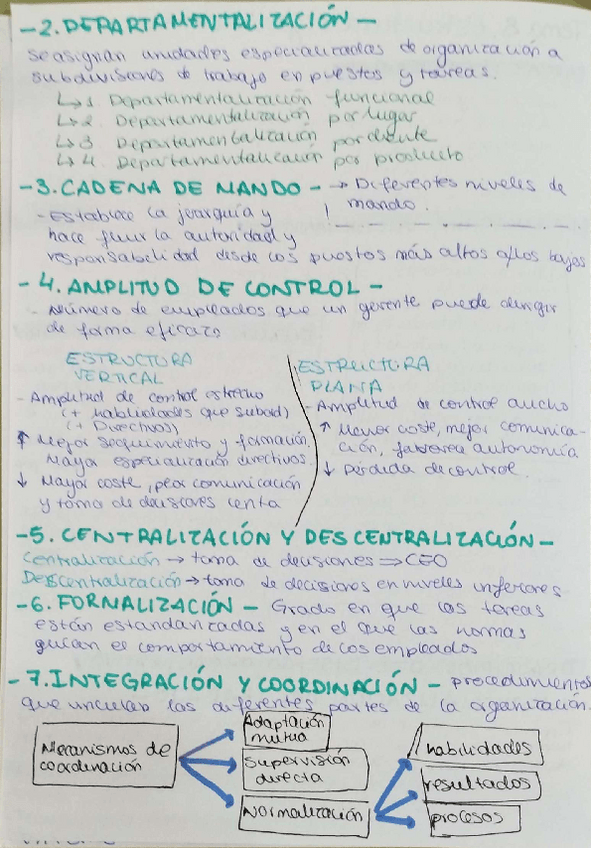 -2. DEPARTAMENTALIZACIÓN-
Se asignan unidades especializadas de organización a
subdivisiones de trabajo en puestos y tareas.
↳ 1. Departamentalización funcional
↳ 2. Departamentalización por lugar
↳ 3 Departamentalización por cliente
↳ 4. Departamentalización por producto
-3. CADENA DE MANDO - → Diferentes niveles de
mando.
- Establece la jerarquía y
hace fluir la autoridad y
responsabilidad desde los puestos más altos a los bajos
-4. AMPLITUD DE CONTROL-
- Número de empleados que un gerente puede dirigir
de forma eficaz
ESTRUCTURA
VERTICAL
- Amplitud de control estrecho
(+ habilidades que subord)
(+ Directivos)
↑ Mejor seguimiento y formación
Mayor especialización directivos.
↓ Mayor coste, peor comunicación
y toma de decisiones lenta
ESTRUCTURA
PLANA
- Amplitud de control ancho
↑ Menor coste, mejor comunica-
ción, favorece autonomía
↓ Pérdida de control.
-5. CENTRALIZACIÓN Y DESCENTRALIZACIÓN-
Centralización → toma de decisiones ⇒ CEO
Descentralización → toma de decisiones en niveles inferiores
-6. FORMALIZACIÓN - Grado en que las tareas
están estandarizadas y en el que las normas
guían el comportamiento de los empleados
-7. INTEGRACIÓN Y COORDINACIÓN - procedimientos
que vinculan las diferentes partes de la organización.
Mecanismos de
coordinación
Adaptación
mutua
Supervisión
directa
Normalización
habilidades
resultados
procesos